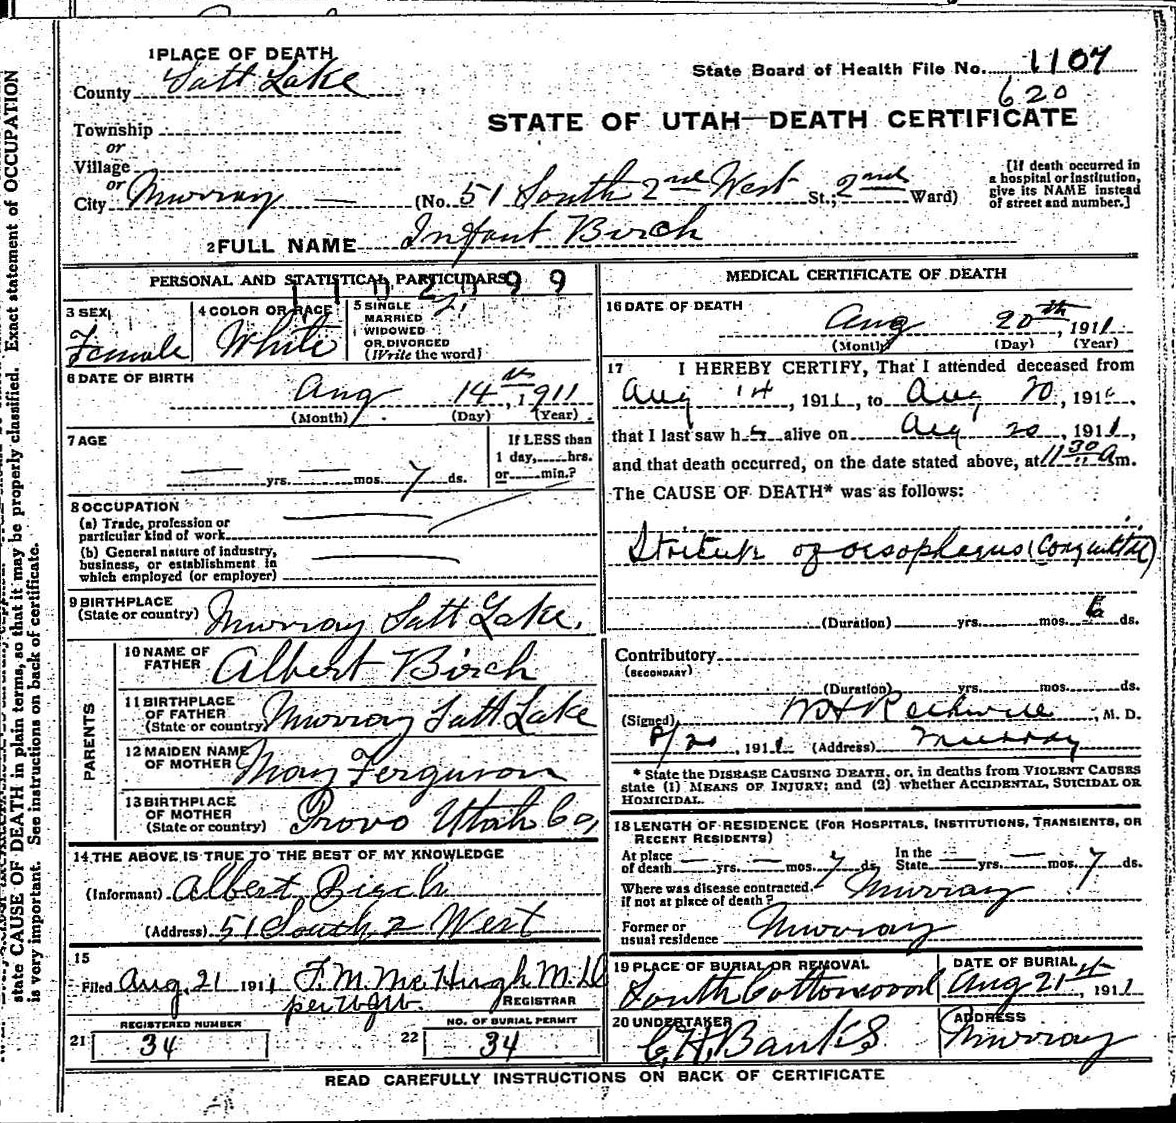 1 PLACE OF DEATH
County Salt Lake
State Board of Health File No. 1107
620
STATE OF UTAH—DEATH CERTIFICATE
Township
or
Village
or
City Murray (No. 51 South 2nd West St.; 2nd Ward)
[If death occurred in
a hospital or institution,
give its NAME instead
of street and number.]
2 FULL NAME Infant Birch
PERSONAL AND STATISTICAL PARTICULARS
3 SEX
Female
4 COLOR OR RACE
White
5 SINGLE
MARRIED
WIDOWED
OR DIVORCED
(Write the word)
S.
6 DATE OF BIRTH
Aug 14th, 1911
(Month) (Day) (Year)
7 AGE
— yrs. — mos. 7 ds.
If LESS than
1 day, hrs.
or min.?
8 OCCUPATION
(a) Trade, profession or
particular kind of work
(b) General nature of industry,
business, or establishment in
which employed (or employer)
9 BIRTHPLACE
(State or country) Murray Salt Lake.
PARENTS
10 NAME OF
FATHER Albert Birch
11 BIRTHPLACE
OF FATHER
(State or country) Murray Salt Lake
12 MAIDEN NAME
OF MOTHER Mary Ferguson
13 BIRTHPLACE
OF MOTHER
(State or country) Provo Utah Co,
14 THE ABOVE IS TRUE TO THE BEST OF MY KNOWLEDGE
(Informant) Albert Birch
(Address) 51 South 2 West
15
Filed Aug. 21 1911 F. M. McHugh M.D
REGISTRAR
REGISTERED NUMBER
21 34
NO. OF BURIAL PERMIT
22 34
MEDICAL CERTIFICATE OF DEATH
16 DATE OF DEATH
Aug 20th, 1911
(Month) (Day) (Year)
17 I HEREBY CERTIFY, That I attended deceased from
Aug 14, 1911, to Aug 20, 191
that I last saw h alive on Aug 20, 1911,
and that death occurred, on the date stated above, at 11 30 a m.
The CAUSE OF DEATH* was as follows:
Stricture of oesophagus (Congenital)
(Duration) yrs. mos. 6 ds.
Contributory
(SECONDARY)
(Duration) yrs. mos. ds.
(Signed) , M. D.
8/20, 1911 (Address) Murray
* State the DISEASE CAUSING DEATH, or, in deaths from VIOLENT CAUSES
state (1) MEANS OF INJURY; and (2) whether ACCIDENTAL, SUICIDAL OR
HOMICIDAL.
18 LENGTH OF RESIDENCE (FOR HOSPITALS, INSTITUTIONS, TRANSIENTS, OR
RECENT RESIDENTS)
At place
of death — yrs. — mos. 7 ds.
In the
State — yrs. — mos. 7 ds.
Where was disease contracted.
if not at place of death? Murray
Former or
usual residence Murray
19 PLACE OF BURIAL OR REMOVAL
South Cottonwood
DATE OF BURIAL
Aug 21st, 1911
20 UNDERTAKER
C. H. Banks
ADDRESS
Murray
READ CAREFULLY INSTRUCTIONS ON BACK OF CERTIFICATE
state CAUSE OF DEATH in plain terms, so that it may be properly classified. Exact statement of OCCUPATION
is very important. See instructions on back of certificate.